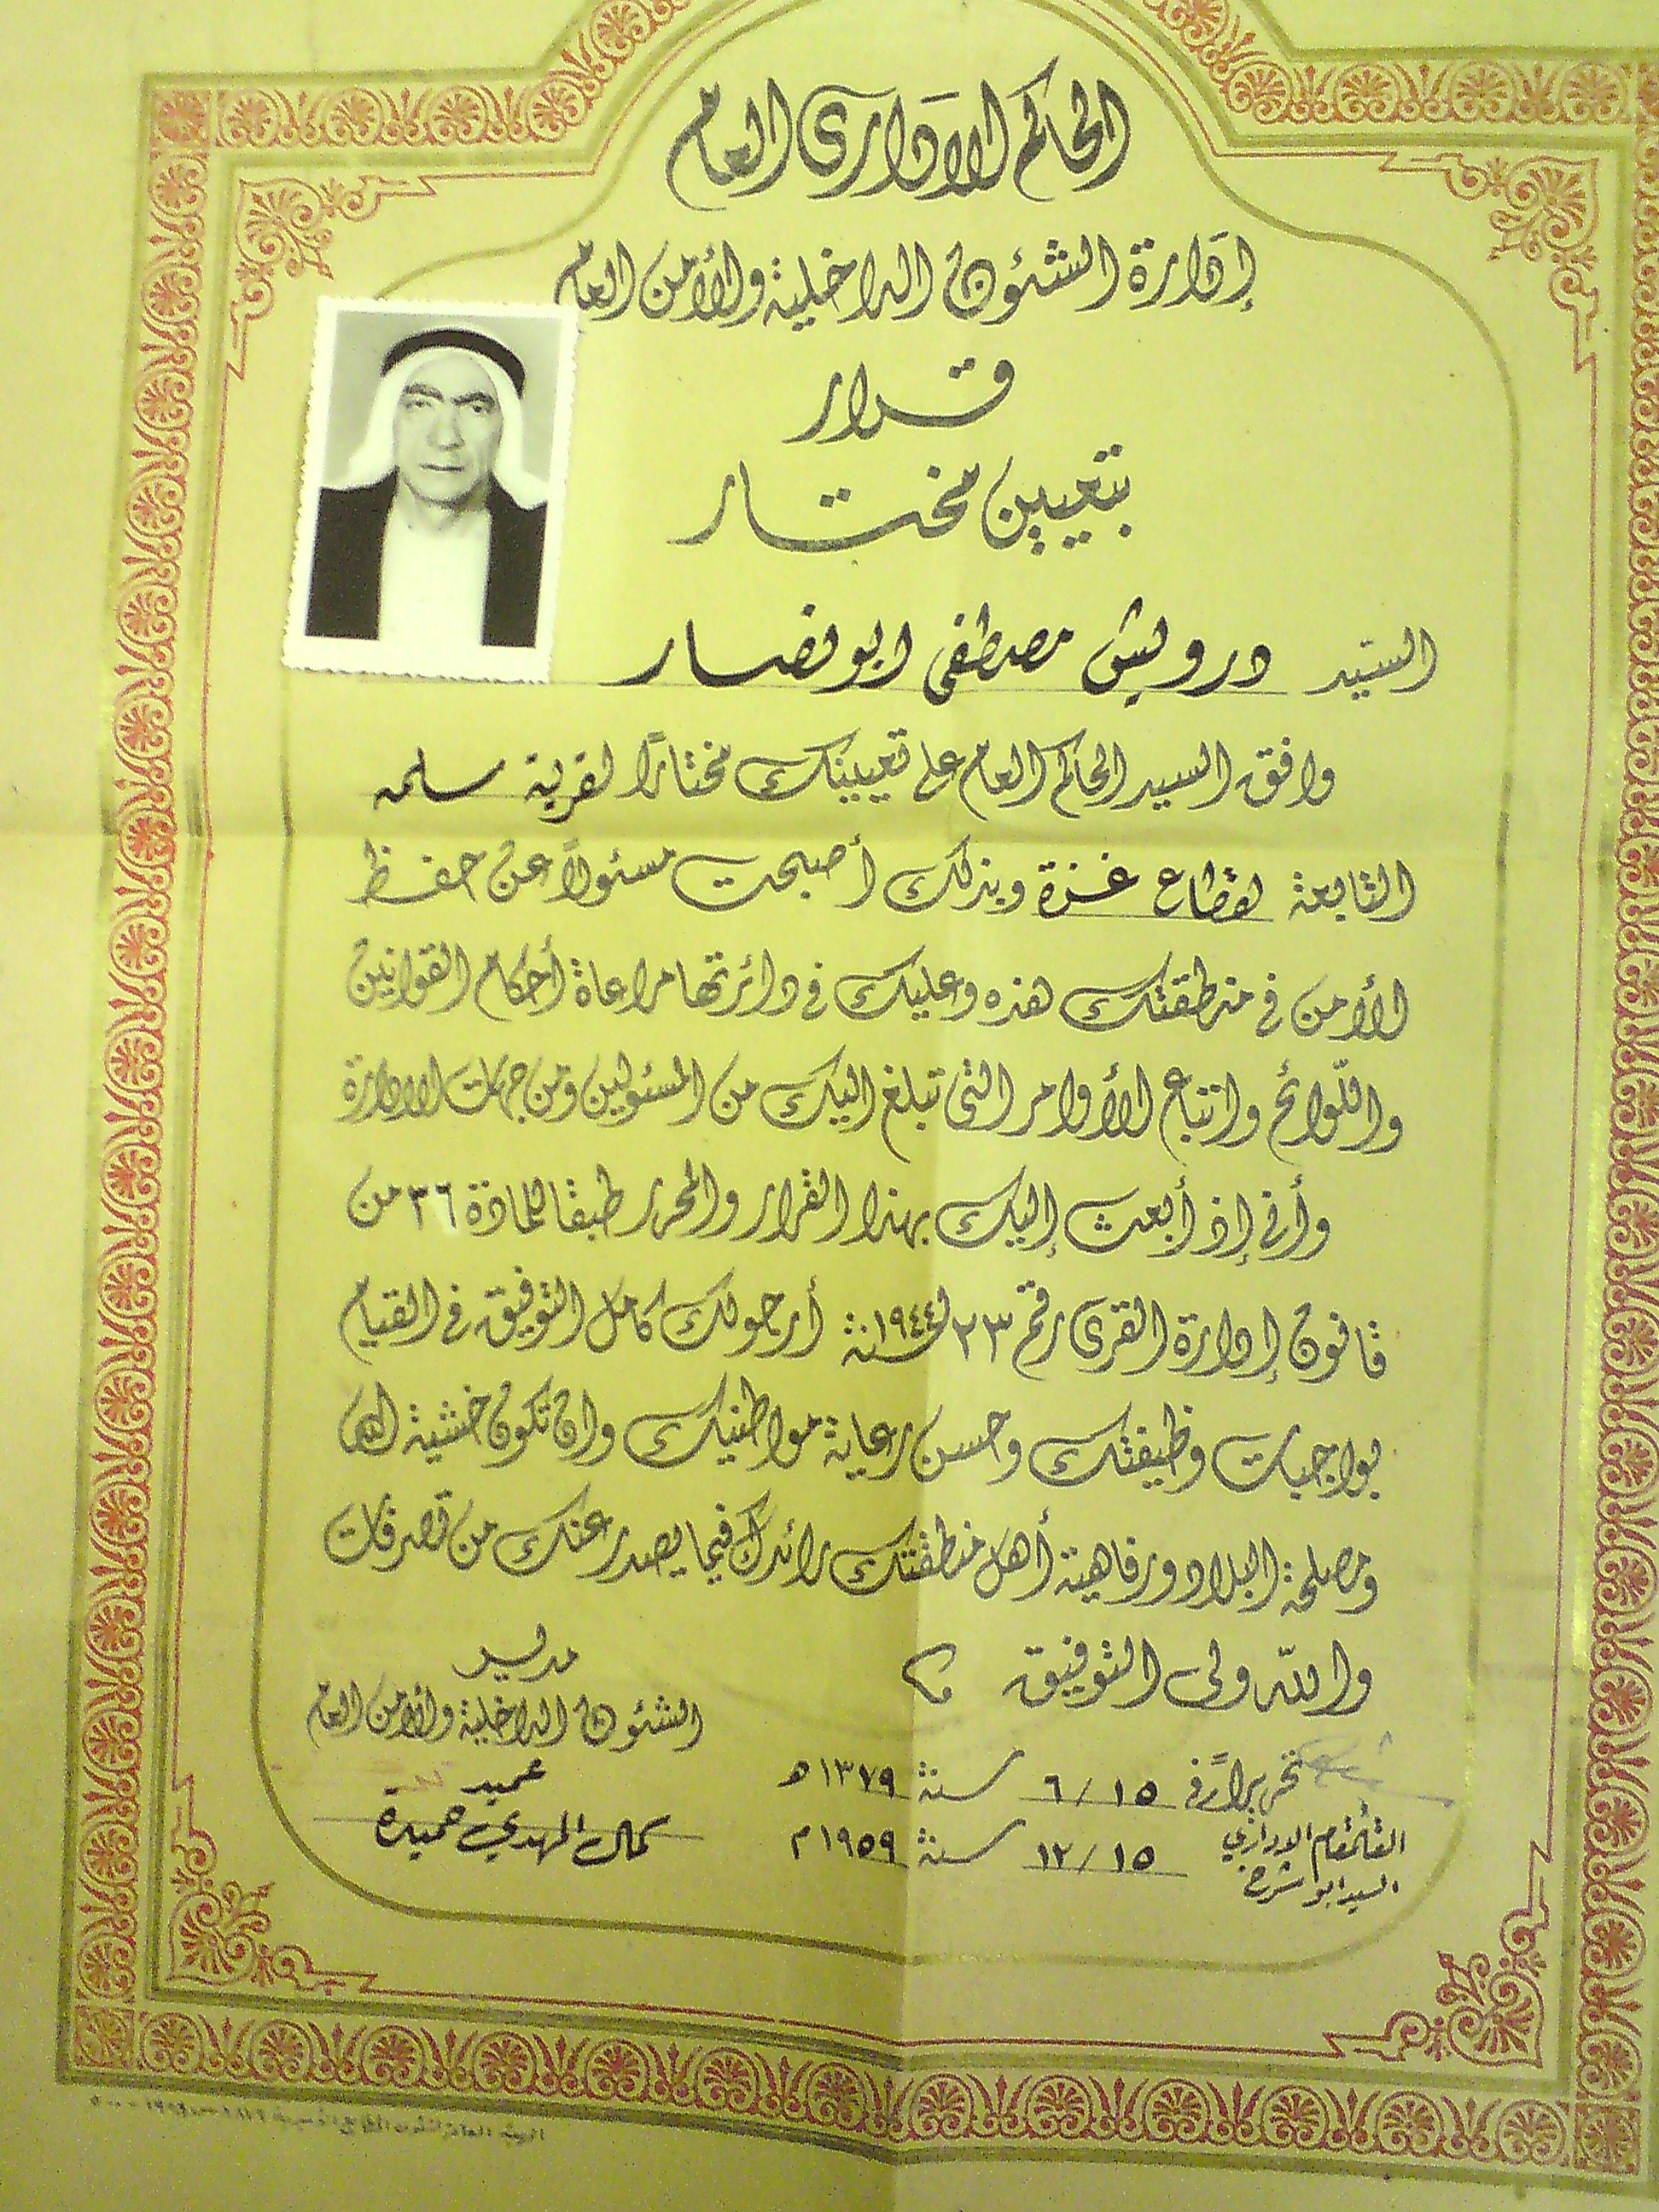 الحاكم الإدارى العام
إدارة الشئون الداخلية والأمن العام
قرار
بتعيين مختار
السيد درويش مصطفى ابو نصار
وافق السيد الحاكم العام على تعيينك مختارًا لقرية سلمه
التابعة لقطاع غزة وبذلك أصبحت مسئولاً عن حفظ
الأمن فى منطقتك هذه وعليك فى دائرتها مراعاة أحكام القوانين
واللوائح واتباع الأوامر التى تبلغ اليك من المسئولين ومن جهات الادارة
وأنى إذ أبعث إليك بهذا القرار والمحرر طبقا للمادة ٣٦ من
قانون إدارة القرى رقم ٢٣ لسنة ١٩٤٤ أرجو لك كامل التوفيق فى القيام
بواجبات وظيفتك وحسن رعاية مواطنيك وان تكون خشية الله
ومصلحة البلاد ورفاهية أهل منطقتك رائدك فيما يصدر عنك من تصرفات
والله ولى التوفيق
مدير
الشئون الداخلية والأمن العام
عميد
كمال المهدي حميدة
تحريرًا فى ١٥ / ٦ سنة ١٣٧٩ ه
١٥ / ١٢ سنة ١٩٥٩ م
القائمقام
السيد ابو شرخ